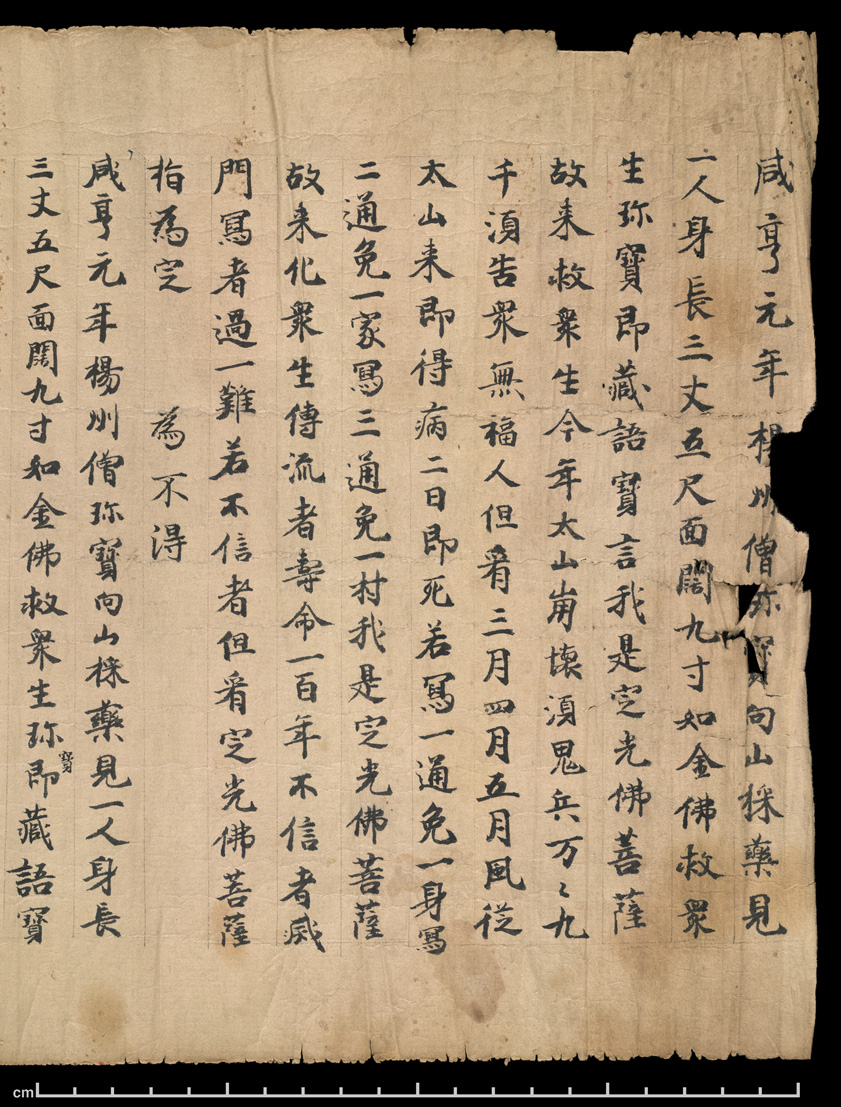 咸亨元年楊州僧珎寳向山採藥見
一人身長三丈五尺面闊九寸如金佛救衆
生珎寳即藏語寳言我是定光佛菩薩
故来救衆生今年太山崩壞湏鬼兵万〻九
千湏告衆無福人但看三月四月五月風從
太山来即得病二日即死若寫一通免一身寫
二通免一家寫三通免一村我是定光佛菩薩
故来化衆生傳流者壽命一百年不信者滅
門寫者過一難若不信者但看定光佛菩薩
指為定 為不得
咸亨元年楊州僧珎寳向山採藥見一人身長
三丈五尺面闊九寸如金佛救衆生珎寳即藏語寳